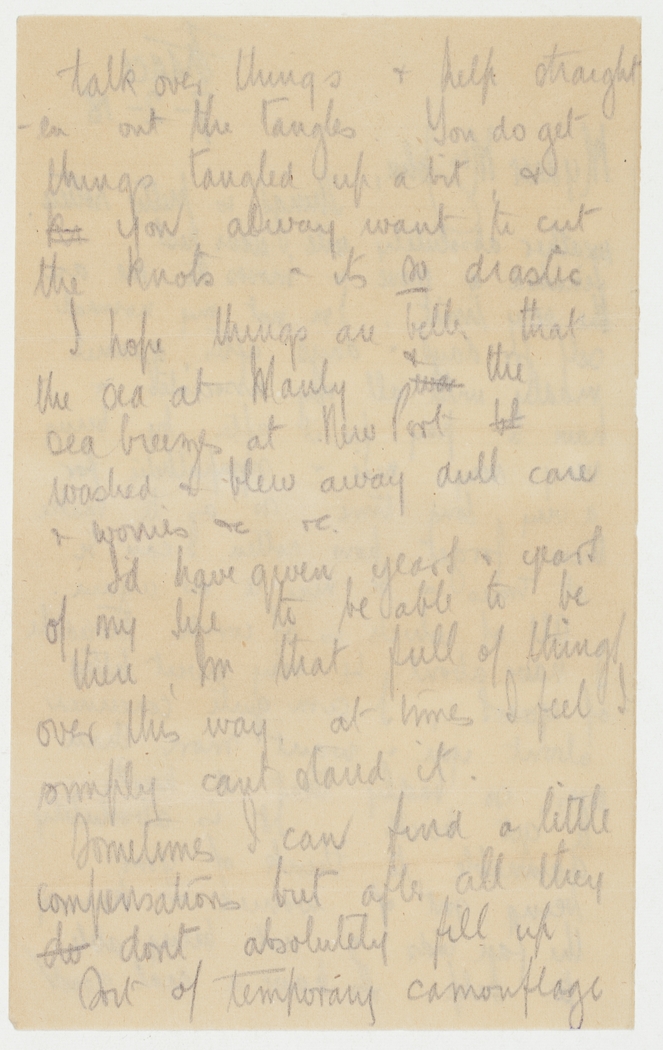 talk over things & help straight
-en out the tangles. You do get
things tangled up a bit, &
you alway want to cut
the knots - its so drastic
I hope things are better that
the sea at Manly & the
sea breezes at New Port
washed & blew away dull care
& worries &c &c.
I'd have given years & years
of my life to be able to be
there, Im that full of things
over this way, at times I feel I
simply cant stand it.
Sometimes I can find a little
compensations but after all they
do dont absolutely fill up
Sort of temporary camouflage